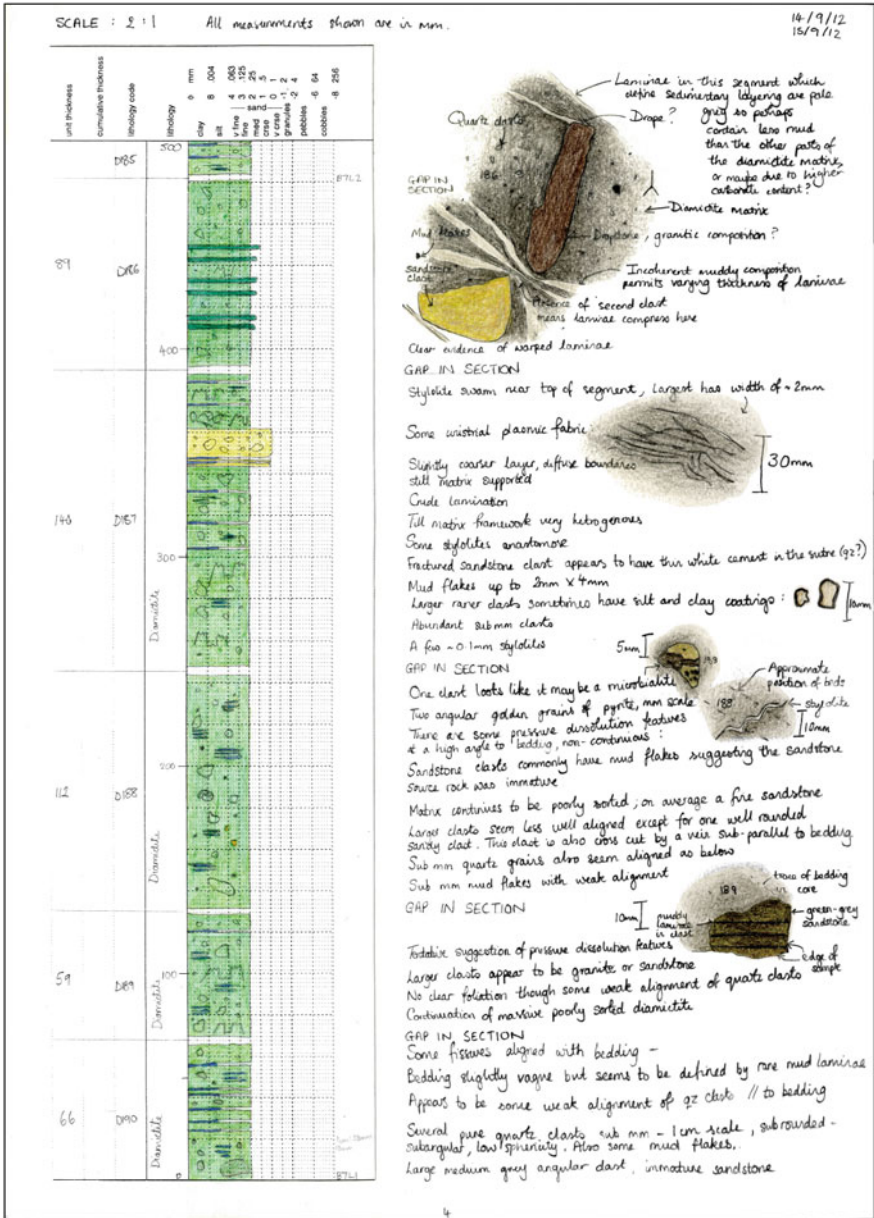 SCALE : 2:1 All measurements shown are in mm.
14/9/12
15/9/12
unit thickness
cumulative thickness
lithology code
lithology
mm
clay
silt
v fine
fine
med
crse
v crse
sand
granules
pebbles
cobbles
ϕ 8 4 3 2 1 0 -1 -2 -6 -8
.004 .063 .125 .25 .5 1 2 4 64 256
500
D185
BTL2
89
D186
400
140
D187
300
Diamictite
200
112
D188
Diamictite
100
59
D189
Diamictite
66
D190
Diamictite
0
BTL1
Laminae in this segment which
define sedimentary layering are pale
grey so perhaps
contain less mud
than the other parts of
the diamictite matrix,
or maybe due to higher
carbonate content?
Quartz clasts
Drope?
186
GAP IN
SECTION
Diamictite matrix
Mud flakes
Dropstone, granitic composition?
sandstone
clast
Incoherent muddy composition
permits varying thickness of laminae
Absence of second clast
means laminae compress here
Clear evidence of warped laminae
GAP IN SECTION
Stylolite swarm near top of segment, largest has width of ~2mm
Some unistrial plasmic fabric:
30mm
Slightly coarser layer, diffuse boundaries
still matrix supported
Crude lamination
Till matrix framework very hetrogenous
Some stylolites anastamose
Fractured sandstone clast appears to have thin white cement in the sutre (qz?)
Mud flakes up to 2mm x 4mm
Larger rarer clasts sometimes have silt and clay coatings:
10mm
Abundant sub mm clasts
A few ~0.1mm stylolites
5mm
GAP IN SECTION
Approximate
position of beds
One clast looks like it may be a microbialite
188
stylolite
Two angular golden grains of pyrite, mm scale
10mm
There are some pressure dissolution features
at a high angle to bedding, non-continuous:
Sandstone clasts commonly have mud flakes suggesting the sandstone
source rock was immature
Matrix continues to be poorly sorted; on average a fine sandstone
Larger clasts seem less well aligned except for one well rounded
sandy clast. This clast is also cross cut by a vein sub-parallel to bedding
Sub mm quartz grains also seem aligned as below
Sub mm mud flakes with weak alignment
GAP IN SECTION
189
trace of bedding
in core
10mm
muddy
laminae
in clast
green-grey
sandstone
edge of
sample
Tentative suggestion of pressure dissolution features
Larger clasts appear to be granite or sandstone
No clear foliation though some weak alignment of quartz clasts
Continuation of massive poorly sorted diamictite
GAP IN SECTION
Some fissures aligned with bedding -
Bedding slightly vague but seems to be defined by rare mud laminae
Appears to be some weak alignment of qz clasts // to bedding
Several pure quartz clasts sub mm - 1cm scale, subrounded -
subangular, low sphericity. Also some mud flakes.
Large medium grey angular clast, immature sandstone
4